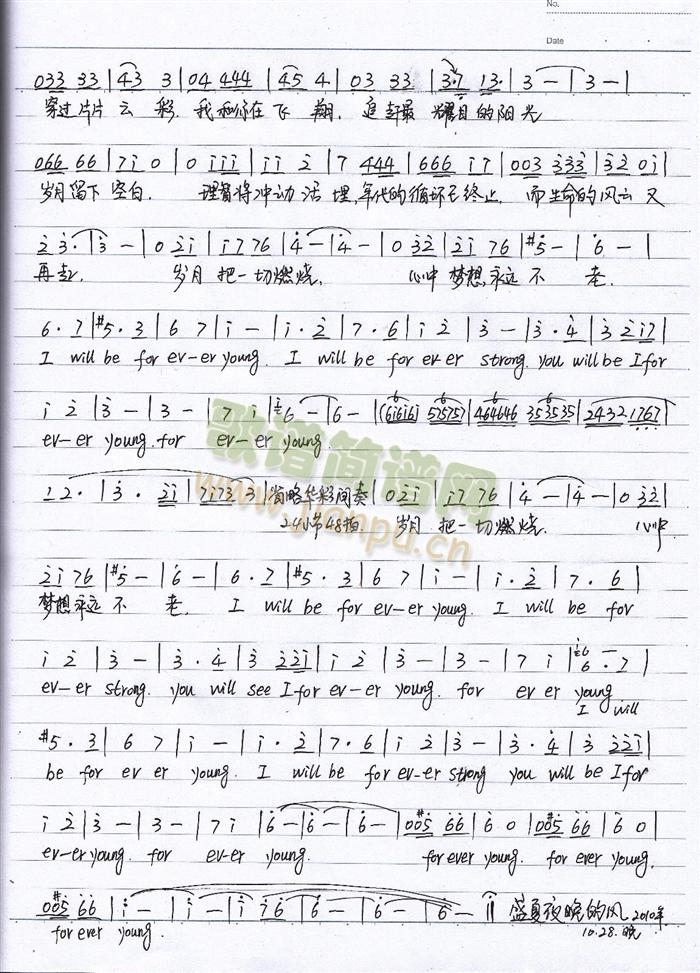 No.
Date
033 33 | 43 3 | 04 444 | 45 4. | 03 33 | 3·1 13· | 3 — | 3 — |
穿过片片云彩. 我和你在飞翔. 追赶最耀目的阳光
066 66 | 7i 0 | 0 iii | ii 2 | 7 444 | 666 i7 | 003 333 | 32 0i |
岁月留下空白. 理智将冲动活埋,年代的循环已终止. 而生命的风云又
2 3· | 3 — | 0 2i | i7 76 | 4 — | 4 — | 0 32 | 2i 76 | #5 — | 6 — |
再起. 岁月把一切燃烧. 心中梦想永远不老.
6·7 | #5·3 | 6 7 | i — | i·2 | 7·6 | i 2 | 3 — | 3·4 | 3 2i7 |
I will be for ev-er young. I will be for ever strong. you will be I for
i 2 | 3 — | 3 — | 7 i | 6 — | 6 — | (6i6i6i 575757 | 464646 353535 | 2432 1767 |
ev-er young. for ev-er young.
12· | 3· 2i | 7i73 3 | 省略华彩间奏 | 02i | i7 76 | 4 — | 4 — | 0 32 |
24小节48拍. 岁月把一切燃烧. 心中
2i 76 | #5 — | 6 — | 6·7 | #5·3 | 6 7 | i — | i·2 | 7·6 |
梦想永远不老. I will be for ev-er young. I will be for
i 2 | 3 — | 3·4 | 3 22i | i 2 | 3 — | 3 — | 7 i | 6·7 |
ev-er strong. you will see I for ev-er young. for ev er young
I will
#5·3 | 6 7 | i — | i·2 | 7·6 | i 2 | 3 — | 3·4 | 3 22i |
be for ev er young. I will be for ev-er strong you will be I for
i 2 | 3 — | 3 — | 7i | 6 — | 6 — | 6 — | 00#5 66 | 6 0 | 00#5 66 | 6 0 |
ev-er young. for ev-er young. for ever young. for ever young.
00#5 66 | i — | i — | i 76 | 6 — | 6 — | 6 — || 盛夏夜晚的风 2010年
for ever young. 10.28.晚
歌谱简谱网
www.jianpu.cn